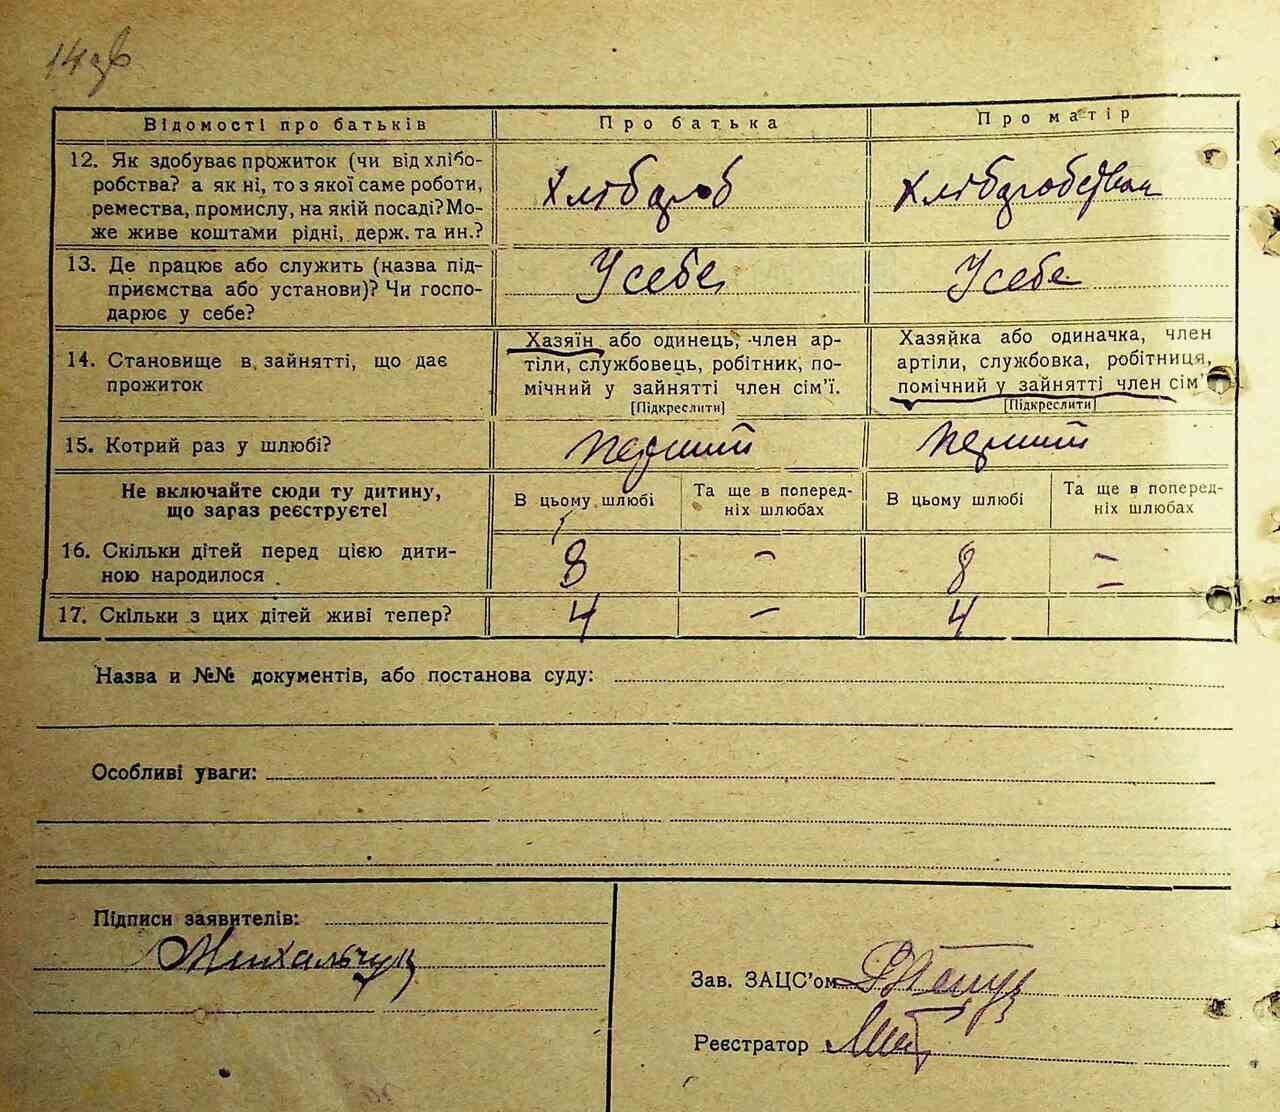 14зв
Відомості про батьків
Про батька
Про матір
12. Як здобуває прожиток (чи від хлібо-
робства? а як ні, то з якої саме роботи,
ремества, промислу, на якій посаді? Мо-
же живе коштами рідні, держ. та ин.?
Хлібороб
Хліборобством
13. Де працює або служить (назва під-
приємства або установи)? Чи госпо-
дарює у себе?
У себе
У себе
14. Становище в зайнятті, що дає
прожиток
Хазяїн або одинець, член ар-
тіли, службовець, робітник, по-
мічний у зайнятті член сім'ї.
[Підкреслити]
Хазяйка або одиначка, член
артіли, службовка, робітниця,
помічний у зайнятті член сім'
[Підкреслити]
15. Котрий раз у шлюбі?
перший
перший
Не включайте сюди ту дитину,
що зараз реєструєте!
В цьому шлюбі
Та ще в поперед-
ніх шлюбах
В цьому шлюбі
Та ще в поперед-
ніх шлюбах
16. Скільки дітей перед цією дити-
ною народилося
8
–
8
=
17. Скільки з цих дітей живі тепер?
4
–
4
Назва и №№ документів, або постанова суду:
Особливі уваги:
Підписи заявителів:
Михальчук
Зав. ЗАЦС'ом
Реєстратор